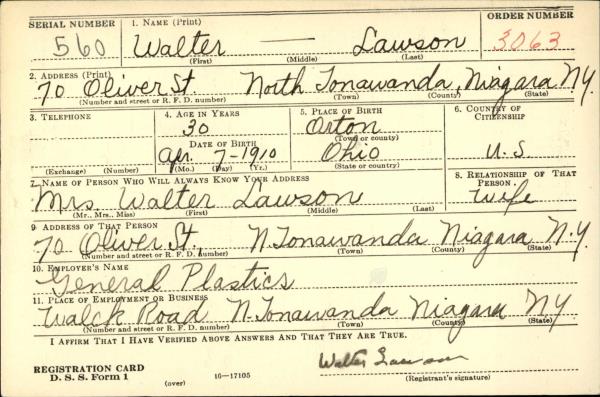 SERIAL NUMBER 1. NAME (Print) ORDER NUMBER
560 Walter — Lawson 3063
(First) (Middle) (Last)
2. ADDRESS (Print)
70 Oliver St North Tonawanda, Niagara N.Y.
(Number and street or R. F. D. number) (Town) (County) (State)
3. TELEPHONE 4. AGE IN YEARS 5. PLACE OF BIRTH 6. COUNTRY OF CITIZENSHIP
30 Orton
(Town or county)
DATE OF BIRTH Ohio U.S
Apr. 7-1910
(Exchange) (Number) (Mo.) (Day) (Yr.) (State or country)
7. NAME OF PERSON WHO WILL ALWAYS KNOW YOUR ADDRESS 8. RELATIONSHIP OF THAT PERSON
Mrs. Walter Lawson Wife
(Mr., Mrs., Miss) (First) (Middle) (Last)
9. ADDRESS OF THAT PERSON
70 Oliver St., N. Tonawanda Niagara N.Y.
(Number and street or R. F. D. number) (Town) (County) (State)
10. EMPLOYER'S NAME
General Plastics
11. PLACE OF EMPLOYMENT OR BUSINESS
Walck Road N. Tonawanda Niagara NY
(Number and street or R. F. D. number) (Town) (County) (State)
I AFFIRM THAT I HAVE VERIFIED ABOVE ANSWERS AND THAT THEY ARE TRUE.
Walter Lawson
REGISTRATION CARD
D. S. S. Form 1 (over) 16—17105 (Registrant's signature)